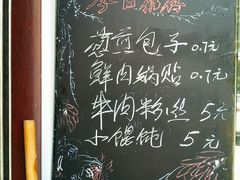 今日供应
葱煎包子 0.7元
鲜肉锅贴 0.7元
牛肉粉丝 5元
小馄饨 5元